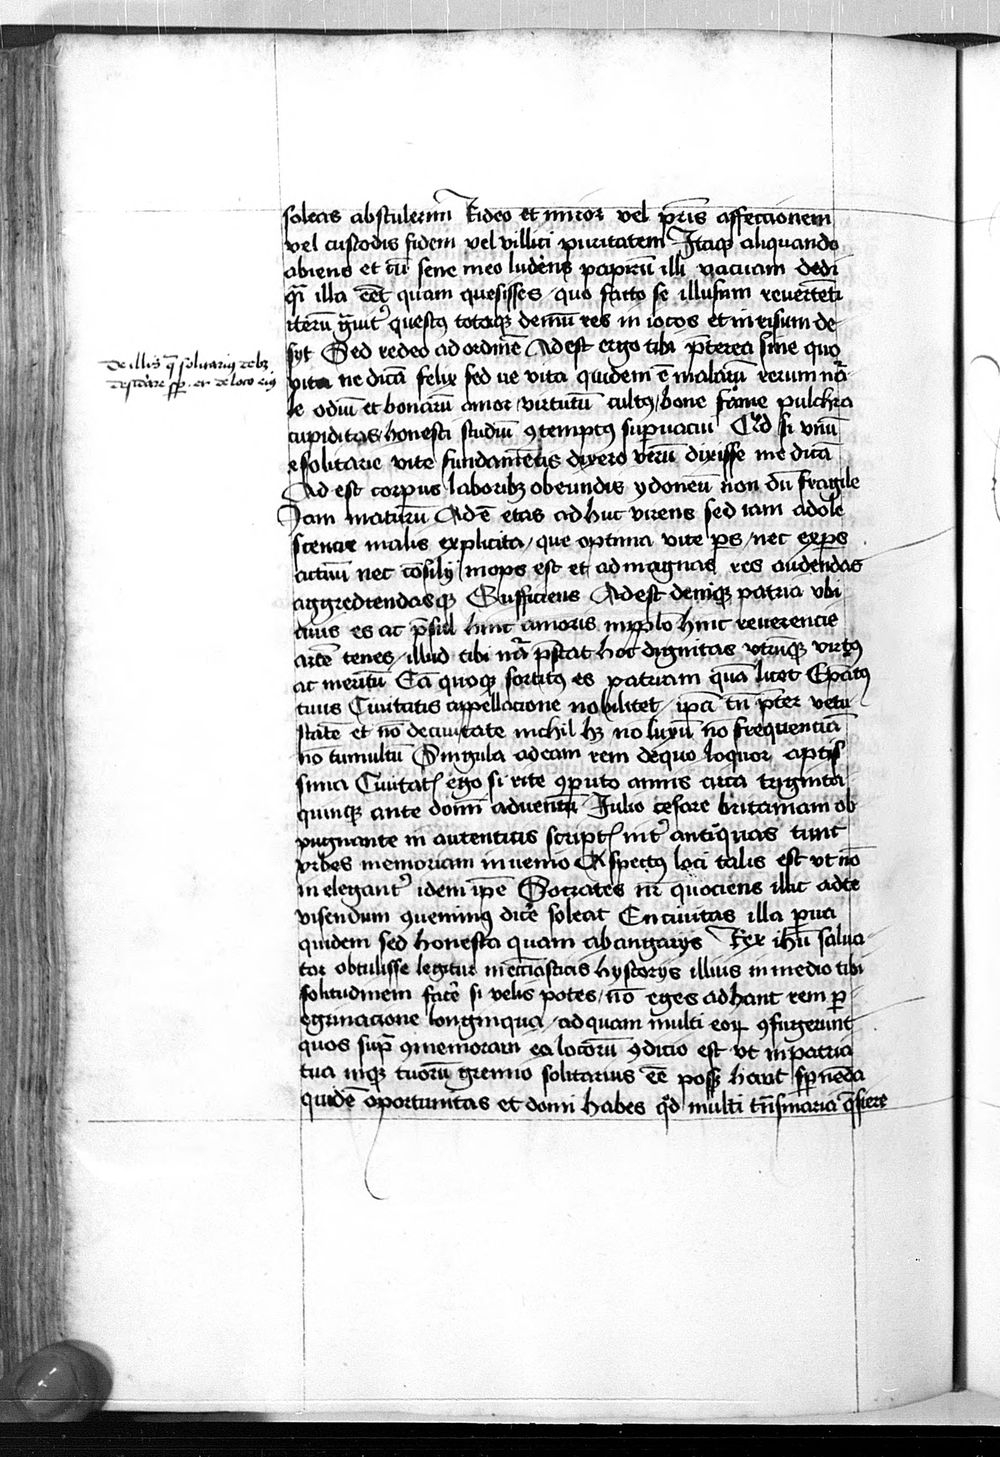 De illis q̄ solitariū debꝫ
soleas abstulerim̄ Rideo et miror vel pr̄is affeccionem
vel custodis fidem vel villici puritatem Itaqꝫ aliquando
abiens et cū sene meo ludens papirū illi vacuam dedi
illa eēt quam quesisses / quo facto se illusum
iterū questus totaqꝫ demū res in iocos et in risum de-
syt Sed redeo ad ordinē Adest ergo tibi p̄terea sine quo
vita ne dicā felix sed ne vita quidem ē malarū rerum nā-
le odiū et bonarū amor / virtutū cultus / bone fāme pulchra
cupiditas / honesti studiū ꝯtemptus supervacui Qd si unū
e solitarie vite fundamētis dixero verū dixisse me dicā
Ad est corpus laboribꝫ obeundis ydoneū non dū fragile
Iam maturū Ad ē etas ad huc virens sed iam adole
scencie malis explicita / que optima vite ps / nec expers
actuū nec cōsilij inops est et ad magnas res audendas
aggrediendasqꝫ Sufficiens Adest deniqꝫ patria vbi
ciuis es ac p̄sul hinc amoris hinc reuerencie
arcē tenes / illud tibi nr̄a p̄stat hoc dignitas utrūqꝫ virtus
ac meritū Eā quoqꝫ sortitus es patriam quā licet Ep̄atus
tuus Ciuitatis appellacione nobilitet / ip̄a tn̄ p̄ter vetu
statē et nō decuitate nichil hꝫ nō luxū nō frequenciā
nō tumultū Singula ad eam rem de quo loquor aptis
sima Ciuitat̄ ego si rite ꝯputo annis circa triginta
quinqꝫ ante domī aduentū / Iulio cesare britaniam ob
pugnante in autenticis script̄ int̄ antiquas tunc
vrbes memoriam inuenio Aspectus loci talis est vt nō
in elegant̄ idem ip̄e Socrates nr̄ quociens illic ad te
visendum ꝯuenimus dicē soleat En ciuitas illa parua
quidem sed honesta quam abangarys Rex ihū salua-
tor obtulisse legitur in ecc̄iasticis hystorijs illius in medio tibi
solitudinem facē si velis potes / nō eges ad hanc rem p̄-
egrinacione longinqua / ad quam multi eoꝝ ꝯfugerunt
quos sup̄ ꝯmemoraui ea locorū ꝯdicio est vt in patria
tua inqꝫ tuorū gremio solitarius eē possꝫ haut sp̄nēda
quidē oportunitas et domi habes qd multi tn̄smaria q̄siere